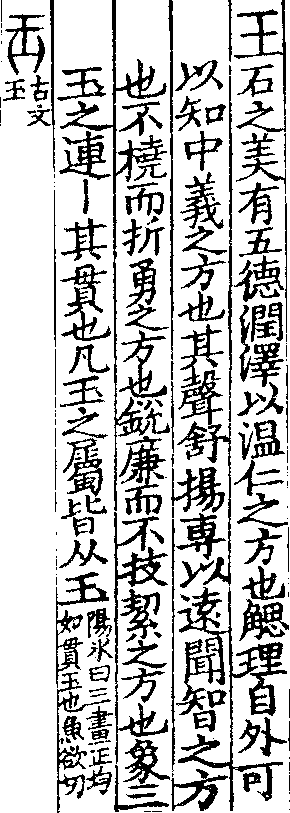 王石之美有五德潤澤以温仁之方也䚡理自外可
以知中義之方也其聲舒揚専以遠聞智之方
也不橈而折勇之方也銳廉而不技絜之方也象三
玉之連丨其貫也凡玉之屬皆从王
陽冰曰三畫正均
如貫玉也魚欲切
𤣪古文
玉